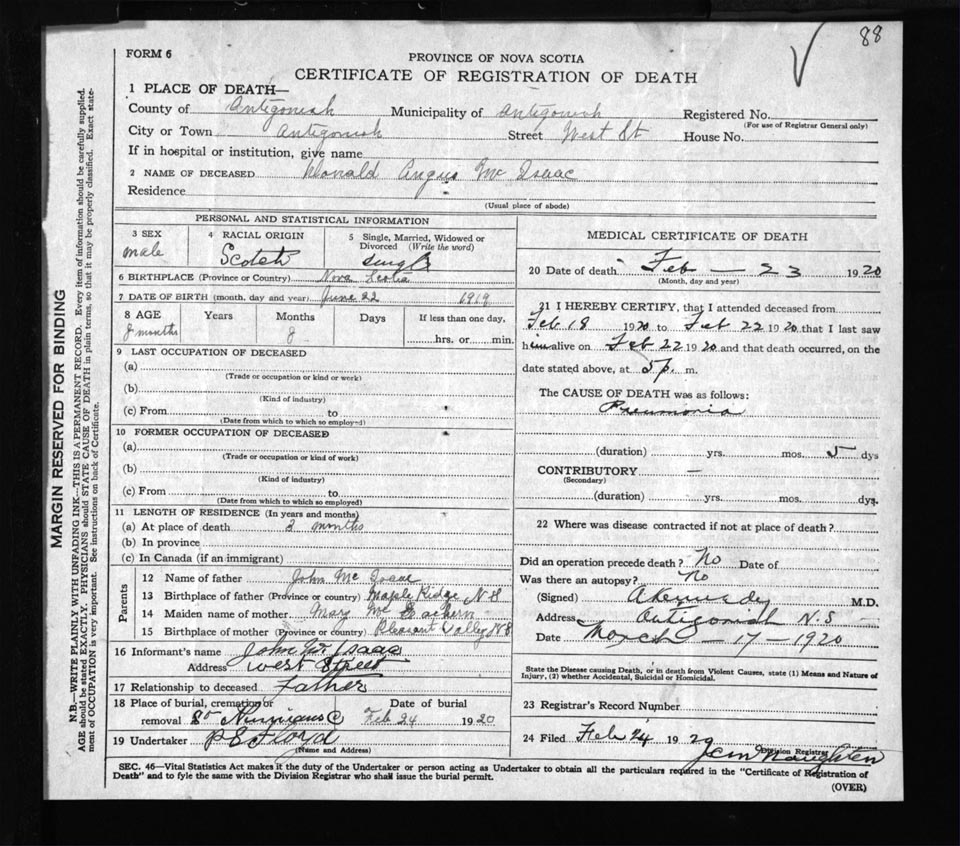 88
FORM 6
PROVINCE OF NOVA SCOTIA
CERTIFICATE OF REGISTRATION OF DEATH
1 PLACE OF DEATH—
County of Antigonish Municipality of Antigonish Registered No.
(For use of Registrar General only)
City or Town Antigonish Street West St House No.
If in hospital or institution, give name
2 NAME OF DECEASED Donald Angus Mc Isaac
Residence
(Usual place of abode)
PERSONAL AND STATISTICAL INFORMATION
3 SEX male
4 RACIAL ORIGIN Scotch
5 Single, Married, Widowed or Divorced (Write the word) Single
6 BIRTHPLACE (Province or Country) Nova Scotia
7 DATE OF BIRTH (month, day and year) June 22 1919
8 AGE Years Months Days If less than one day,
8 months 8 hrs. or min.
9 LAST OCCUPATION OF DECEASED
(a)
(Trade or occupation or kind or work)
(b)
(Kind of industry)
(c) From to
(Date from which to which so employed)
10 FORMER OCCUPATION OF DECEASED
(a)
(Trade or occupation or kind of work)
(b)
(Kind of industry)
(c) From to
(Date from which to which so employed)
11 LENGTH OF RESIDENCE (In years and months)
(a) At place of death months
(b) In province
(c) In Canada (if an immigrant)
Parents
12 Name of father John Mc Isaac
13 Birthplace of father (Province or country) Maple Ridge N S
14 Maiden name of mother Mary Mc Eachern
15 Birthplace of mother (Province or country) Pleasant Valley N S
16 Informant's name John Isaac
Address West Street
17 Relationship to deceased Father
18 Place of burial, cremation or removal St Ninnians C
Date of burial Feb 24 1920
19 Undertaker P S Floyd
(Name and Address)
MEDICAL CERTIFICATE OF DEATH
20 Date of death Feb — 23 1920
(Month, day and year)
21 I HEREBY CERTIFY, that I attended deceased from
Feb 18 1920 to Feb 22 1920 that I last saw
him alive on Feb 22 1920 and that death occurred, on the
date stated above, at 5 p. m.
The CAUSE OF DEATH was as follows:
Pneumonia
(duration) yrs. mos. 5 dys
CONTRIBUTORY —
(Secondary)
(duration) yrs. mos. dys.
22 Where was disease contracted if not at place of death?
Did an operation precede death? No Date of
Was there an autopsy? No
(Signed) M.D.
Address Antigonish N.S
Date March — 17 — 1920
State the Disease causing Death, or in death from Violent Causes, state (1) Means and Nature of
Injury, (2) whether Accidental, Suicidal or Homicidal.
23 Registrar's Record Number
24 Filed Feb 24 1920
Division Registrar
SEC. 46—Vital Statistics Act makes it the duty of the Undertaker or person acting as Undertaker to obtain all the particulars required in the "Certificate of Registration of
Death" and to fyle the same with the Division Registrar who shall issue the burial permit.
(OVER)
MARGIN RESERVED FOR BINDING
N.B.—WRITE PLAINLY WITH UNFADING INK—THIS IS A PERMANENT RECORD. Every item of information should be carefully supplied.
AGE should be stated EXACTLY. PHYSICIANS should STATE CAUSE OF DEATH in plain terms, so that it may be properly classified. Exact state-
ment of OCCUPATION is very important. See instructions on back of Certificate.